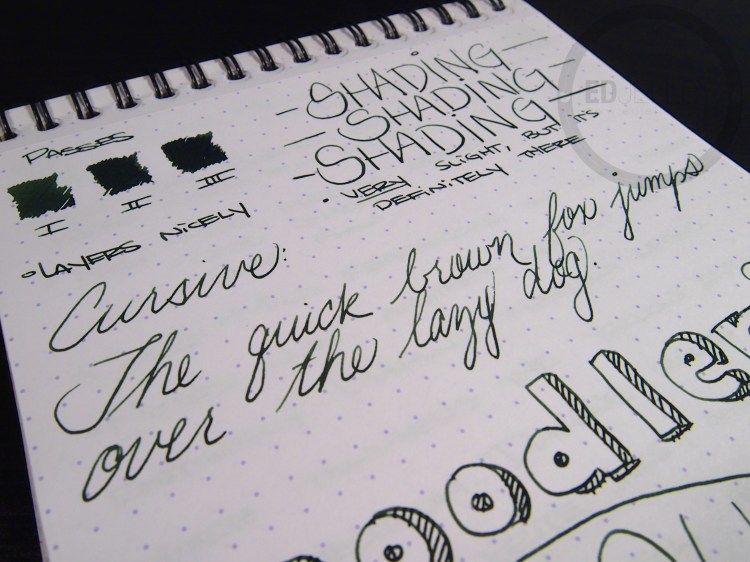 PASSES
I II III
• LAYERS NICELY
- SHADING -
- SHADING -
- SHADING -
• VERY SLIGHT, BUT IT'S
DEFINITELY THERE
Cursive:
The quick brown fox jumps
over the lazy dog.
oodler
ED